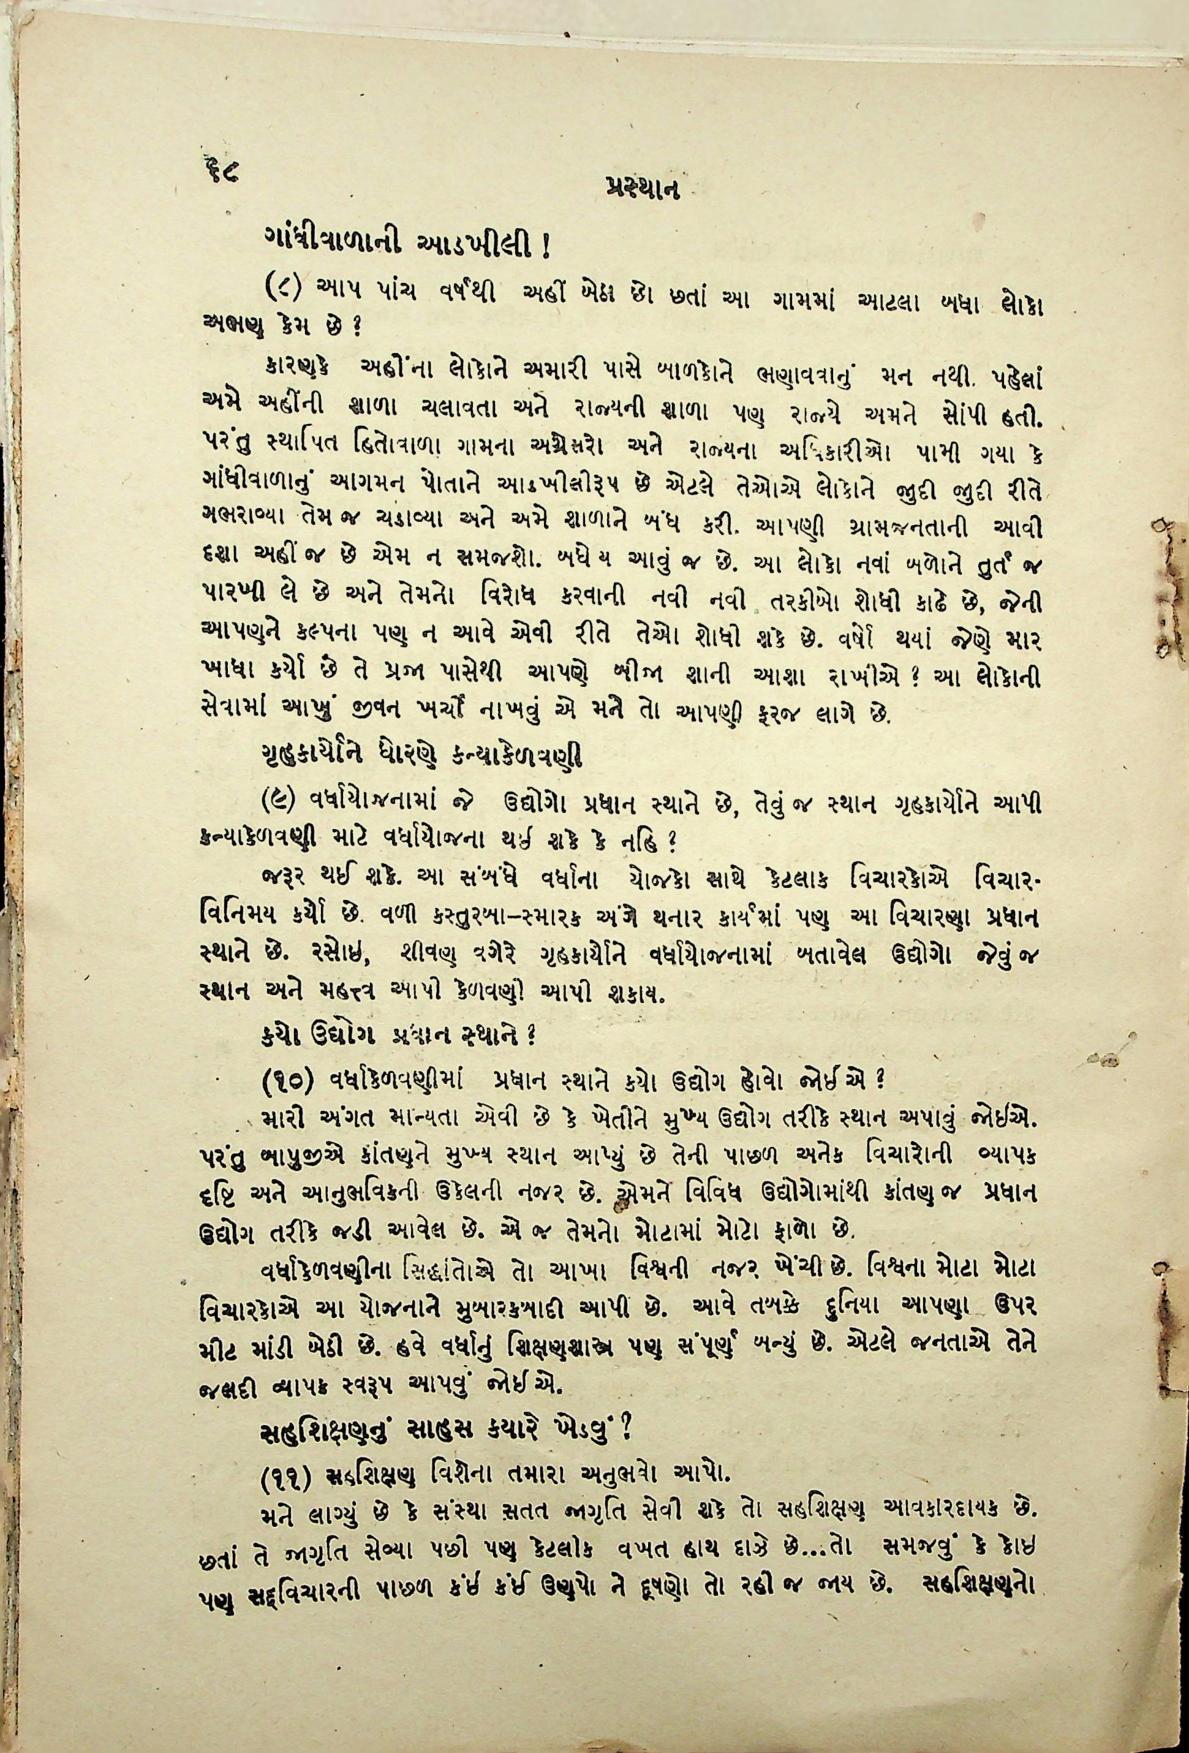 ૬૮
પ્રસ્થાન
ગાંધીવાળાની આડખીલી!
(૮) આપ પાંચ વર્ષથી અહીં બેઠા છો છતાં આ ગામમાં આટલા બધા લોકો
અભણ કેમ છે?
કારણકે અહીંના લોકોને અમારી પાસે બાળકોને ભણાવવાનું મન નથી. પહેલાં
અમે અહીંની શાળા ચલાવતા અને રાજ્યની શાળા પણ રાજ્યે અમને સોંપી હતી.
પરંતુ સ્થાપિત હિતોવાળા ગામના અગ્રેસરો અને રાજ્યના અધિકારીઓ પામી ગયા કે
ગાંધીવાળાનું આગમન પોતાને આડખીલીરૂપ છે એટલે તેઓએ લોકોને જુદી જુદી રીતે
ગભરાવ્યા તેમ જ ચડાવ્યા અને અમે શાળાને બંધ કરી. આપણી ગ્રામજનતાની આવી
દશા અહીં જ છે એમ ન સમજશો. બધે ય આવું જ છે. આ લોકો નવાં બળોને તુર્ત જ
પારખી લે છે અને તેમનો વિરોધ કરવાની નવી નવી તરકીબો શોધી કાઢે છે, જેની
આપણને કલ્પના પણ ન આવે એવી રીતે તેઓ શોધી શકે છે. વર્ષો થયાં જેણે માર
ખાધા કર્યો છે તે પ્રજા પાસેથી આપણે બીજા શાની આશા રાખીએ? આ લોકોની
સેવામાં આખું જીવન ખર્ચી નાખવું એ મને તો આપણી ફરજ લાગે છે.
ગૃહકાર્યોને ધોરણે કન્યાકેળવણી
(૯) વર્ધાયોજનામાં જે ઉદ્યોગો પ્રધાન સ્થાને છે, તેવું જ સ્થાન ગૃહકાર્યોને આપી
કન્યાકેળવણી માટે વર્ધાયોજના થઇ શકે કે નહિ?
જરૂર થઈ શકે. આ સંબંધે વર્ધાના યોજકો સાથે કેટલાક વિચારકોએ વિચાર-
વિનિમય કર્યો છે. વળી કસ્તુરબા–સ્મારક અંગે થનાર કાર્યમાં પણ આ વિચારણા પ્રધાન
સ્થાને છે. રસોઇ, શીવણ વગેરે ગૃહકાર્યોને વર્ધાયોજનામાં બતાવેલ ઉદ્યોગો જેવું જ
સ્થાન અને મહત્ત્વ આપી કેળવણી આપી શકાય.
કયો ઉદ્યોગ પ્રધાન સ્થાને?
(૧૦) વર્ધાકેળવણીમાં પ્રધાન સ્થાને કયો ઉદ્યોગ હોવો જોઈએ?
મારી અંગત માન્યતા એવી છે કે ખેતીને મુખ્ય ઉદ્યોગ તરીકે સ્થાન અપાવું જોઇએ.
પરંતુ બાપુજીએ કાંતણને મુખ્ય સ્થાન આપ્યું છે તેની પાછળ અનેક વિચારોની વ્યાપક
દૃષ્ટિ અને આનુભવિકની ઉકેલની નજર છે. એમને વિવિધ ઉદ્યોગોમાંથી કાંતણ જ પ્રધાન
ઉદ્યોગ તરીકે જડી આવેલ છે. એ જ તેમનો મોટામાં મોટો ફાળો છે.
વર્ધાકેળવણીના સિદ્ધાંતોએ તો આખા વિશ્વની નજર ખેંચી છે. વિશ્વના મોટા મોટા
વિચારકોએ આ યોજનાને મુબારકબાદી આપી છે. આવે તબક્કે દુનિયા આપણા ઉપર
મીટ માંડી બેઠી છે. હવે વર્ધાનું શિક્ષણશાસ્ત્ર પણ સંપૂર્ણ બન્યું છે. એટલે જનતાએ તેને
જલદી વ્યાપક સ્વરૂપ આપવું જોઈએ.
સહશિક્ષણનું સાહસ કયારે ખેડવું?
(૧૧) સહશિક્ષણ વિશેના તમારા અનુભવો આપો.
મને લાગ્યું છે કે સંસ્થા સતત જાગૃતિ સેવી શકે તો સહશિક્ષણ આવકારદાયક છે.
છતાં તે જાગૃતિ સેવ્યા પછી પણ કેટલીક વખત હાથ દાઝે છે...તો સમજવું કે કોઇ
પણ સદ્વિચારની પાછળ કંઈ કંઈ ઉણપો ને દૂષણો તો રહી જ જાય છે. સહશિક્ષણનો